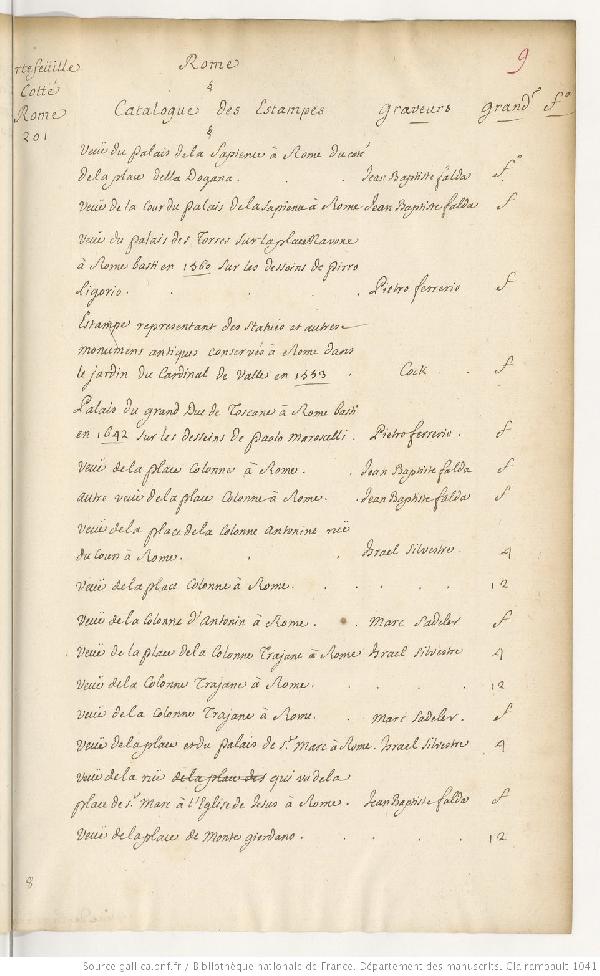 Rome 9
rtefeuille
Cotté
Rome
201
Catalogue des Estampes Graveurs grandr fo
Veüe du palais de la Sapience à Rome du coté
de la place della Dogana. Jean Baptiste falda fo
Veüe de la Cour du palais de la Sapience à Rome Jean Baptiste falda f
Veüe du palais des Torres sur la place Navone
à Rome basti en 1560 sur les desseins de pirro
Ligorio. Pietro ferrerio f
Estampe representant des Statües et autres
monumens antiques conservés à Rome dans
le jardin du Cardinal de Valle en 1553 . Cock . f
Palais du grand Duc de Toscane à Rome basti
en 1642 sur les desseins de paolo Maroscelli . Pietro ferrerio . f
Veüe de la place Colonne à Rome. . Jean Baptiste falda f
autre veüe de la place Colonne à Rome. . Jean Baptiste falda f
Veüe de la place de la Colonne Antonine rüe
du Cours à Rome. . . Israel Silvestre . 4
Veüe de la place Colonne à Rome . . . . . 12
Veüe de la Colonne d'Antonin à Rome . . Marc Sadeler f
Veüe de la place de la Colonne Trajane à Rome Israel Silvestre 4
Veüe de la Colonne Trajane à Rome . . . . 12
Veüe de la Colonne Trajane à Rome. . Marc Sadeler . f
Veüe de la place et du palais de St. Marc à Rome. Israel Silvestre 4
Veüe de la rüe de la place des qui va de la
place de St. Marc à l'Eglise de Jesus à Rome . Jean Baptiste falda f
Veüe de la place de Monte giordano . . . . 12
8
Source gallica.bnf.fr / Bibliothèque nationale de France. Département des manuscrits. Clairambault 1041